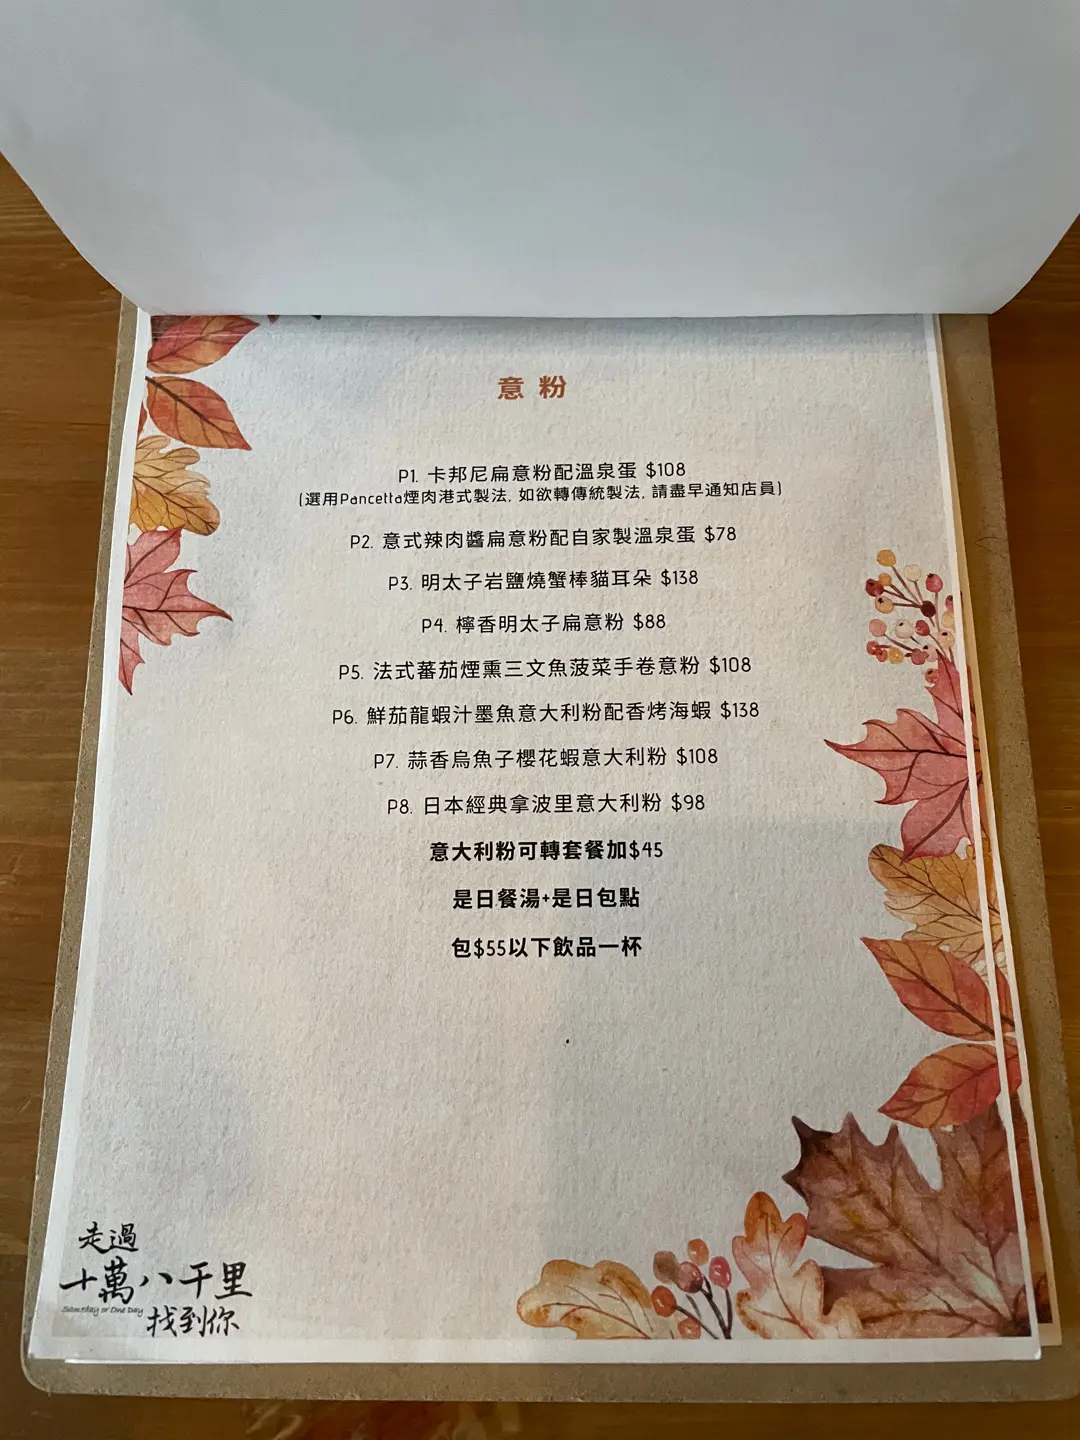 意粉
P1. 卡邦尼扁意粉配溫泉蛋 $108
(選用Pancetta煙肉港式製法, 如欲轉傳統製法, 請盡早通知店員)
P2. 意式辣肉醬扁意粉配自家製溫泉蛋 $78
P3. 明太子岩鹽燒蟹棒貓耳朵 $138
P4. 檸香明太子扁意粉 $88
P5. 法式蕃茄煙熏三文魚菠菜手卷意粉 $108
P6. 鮮茄龍蝦汁墨魚意大利粉配香烤海蝦 $138
P7. 蒜香烏魚子櫻花蝦意大利粉 $108
P8. 日本經典拿波里意大利粉 $98
意大利粉可轉套餐加$45
是日餐湯+是日包點
包$55以下飲品一杯
走過
十萬八千里
Someday or One Day
找到你